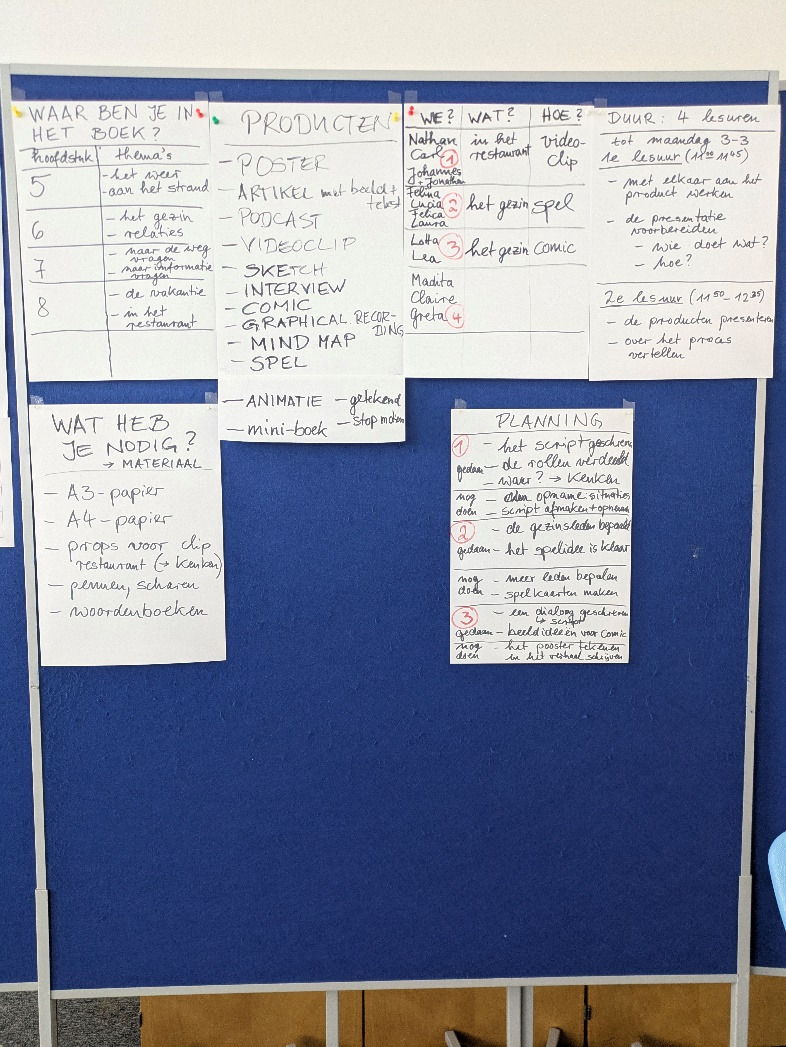 WAAR BEN JE IN
HET BOEK?
hoofdstuk thema's
5 - het weer
- aan het strand
6 - het gezin
- relaties
7 - naar de weg
vragen
- naar informatie
vragen
8 - de vakantie
- in het
restaurant
PRODUCTEN
- POSTER
- ARTIKEL met beeld +
tekst
- PODCAST
- VIDEOCLIP
- SKETCH
- INTERVIEW
- COMIC
- GRAPHICAL RECOR-
DING
- MIND MAP
- SPEL
- ANIMATIE - getekend
- stop motion
- mini-boek
WE? WAT? HOE?
Nathan in het video-
Carl 1 restaurant clip
Johannes
+ Jonathan
Felina
Lucia 2 het gezin spel
Felica
Laura
Lotta 3 het gezin comic
Lea
Madita
Claire
Greta 4
DUUR: 4 lesuren
tot maandag 3-3
1e lesuur (11:00 11:45)
- met elkaar aan het
product werken
- de presentatie
voorbereiden
- wie doet wat?
- hoe?
2e lesuur (11:50 12:35)
- de producten presenteren
- over het proces
vertellen
WAT HEB
JE NODIG?
→ MATERIAAL
- A3-papier
- A4-papier
- props voor clip
restaurant (→ Keuken)
- pennen, scharen
- woordenboeken
PLANNING
1 - het script geschreven
gedaan - de rollen verdeeld
- waar? → Keuken
nog - opname situaties
doen - script afmaken + opnemen
2 - de gezinsleden bepaald
gedaan - het spelidee is klaar
nog - meer leden bepalen
doen - spelkaarten maken
3 - een dialoog geschreven
↳ script
gedaan - beeldideeën voor comic
nog - het pooster tekenen
doen in het verhaal schijven